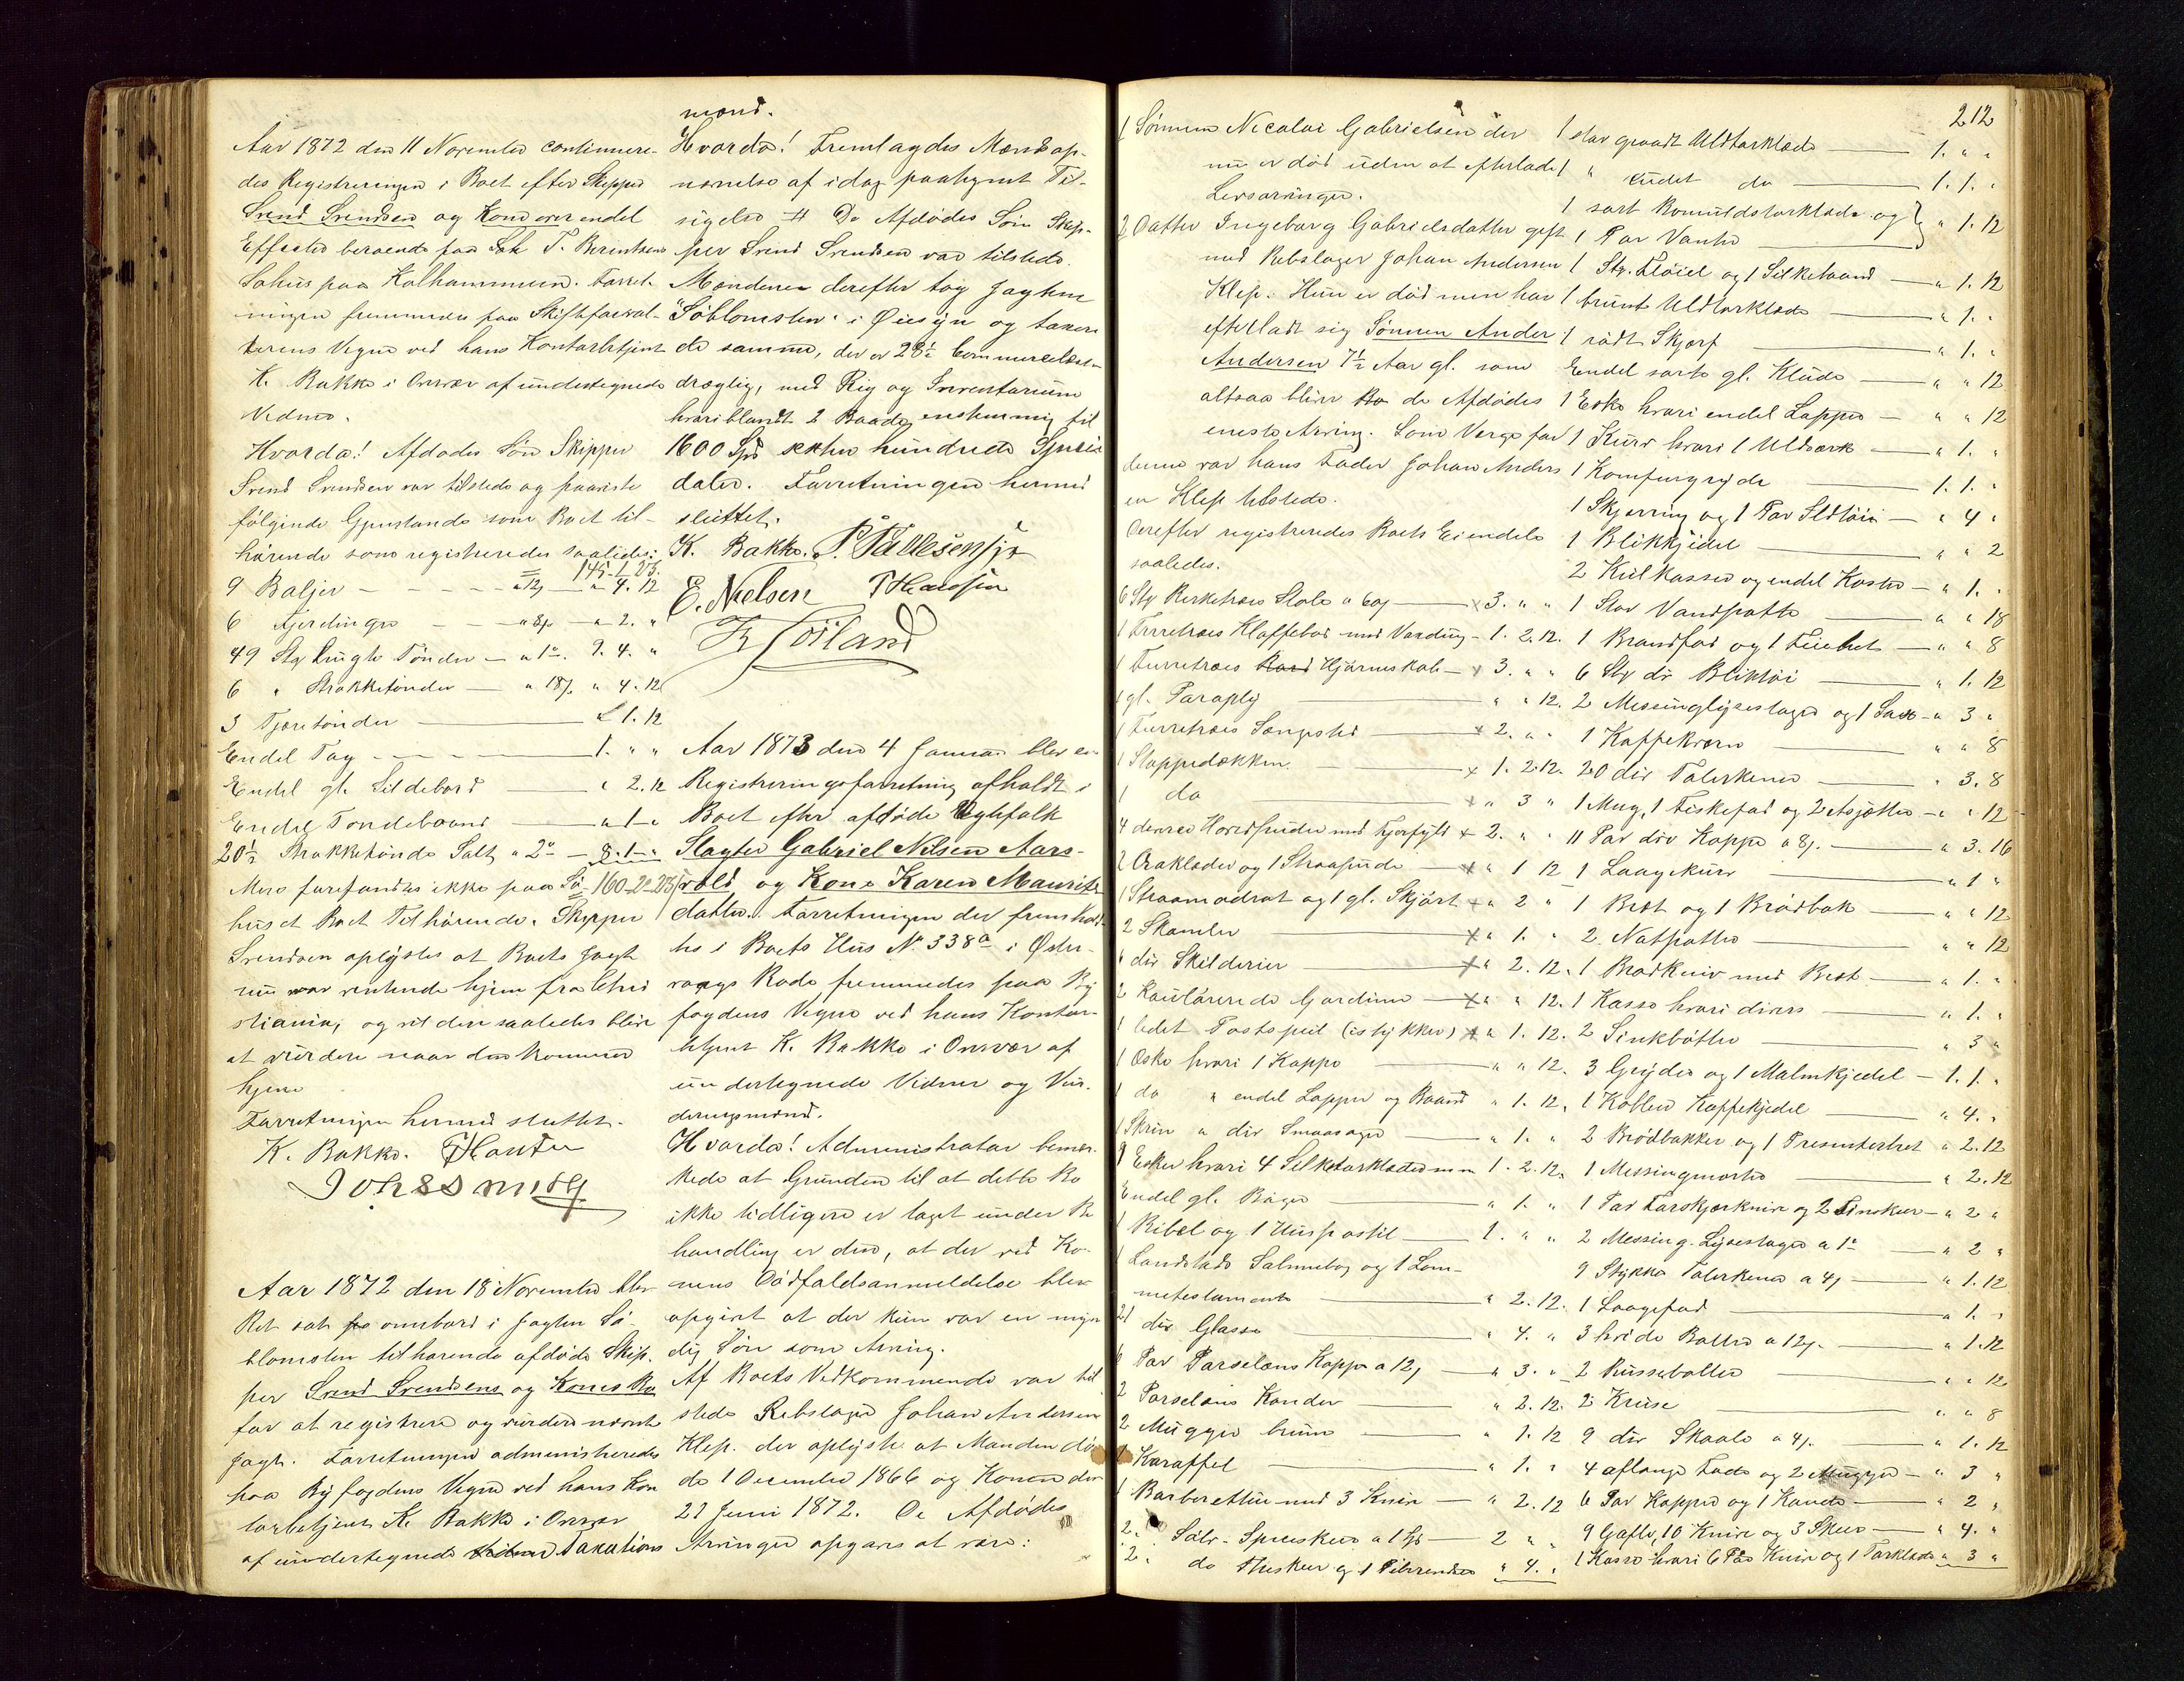 Aar 1872 den 11 November continuere-
des Registreringen i Boet efter Skipper
Svend Svendsen og Kone over endel
Effecter beroende paa Sek T. Berentsens
Søhus paa Kalhammeren. Forret-
ningen fremmedes paa Skifteforval-
terens Vegne ved hans Kontorbetjent
K. Bakke i Overvær af undertegnede
Vidner.
Hvorda! Afdødes Søn Skipper
Svend Svendsen var tilstede og paaviste
følgende Gjenstande som Boet til-
hørende som registreredes saaledes:
145-1-23.
9 Baljer — a 12 — " 4. 12
6 Fjerdinger — a 8 — " 2. "
49 Stk Lugte Tønder — a 1. 9. 4. "
6 " Strækketønder — a 18 " 4. 12
3 Tjæretønder — " 1. 12
Endel Tag — 1. " "
Endel gl. Sildebord — " 2. 12
Endel Tøndebaand — " 1 "
20½ Strækketønde Salt a 2 — 8. 1 "
Mere forefandtes ikke paa Sø- 160-2-23
huset Boet Tilhørende. Skipper
Svendsen oplyste at Boets Jagt
nu var ventende hjem fra Chri
stiania, og vil den saaledes blive
at vurdere naar den kommer
hjem
Forretningen hermed sluttet.
K. Bakke. T Hansen
Aar 1872 den 18 November blev
Ret sat ombord i Jagten Sø-
blomsten tilhørende afdøde Skip-
per Svend Svendsens og Kones Bo
for at registrere og vurdere nævnte
Jagt. Forretningen administreredes
paa Byfogdens Vegne ved hans Kon
torbetjent K. Bakke i Overvær
af undertegnede Taxations
mænd.
Hvorda! Fremlagdes Mændsop-
nævnelse af idag paategnet Til-
sigelse # De Afdødes Søn Skip-
per Svend Svendsen var tilstede.
Mændene derefter tog Jagten
"Søblomsten" i Øiesyn og taxere
de samme, der er 28½ Commercelæster
drægtig, med Rig og Inventarium
hvoriblandt 2 Baade, enstemmig til
1600 Spd sexten hundrede Specie
daler. Forretningen hermed
sluttet.
K. Bakke. P. Pallesen jr
E. Nielsen T Hansen
Aar 1873 den 4 Januar blev en
Registreringsforretning afholdt i
Boet efter afdøde Ægtefolk
Slagter Gabriel Nilsen Aars-
vold og Kone Karen Maurits
datter. Forretningen der fremhold-
tes i Boets Hus No 338a i Øster-
vaags Rode fremmedes paa By
fogdens Vegne ved hans Kontor-
betjent K. Bakke i Overvær af
undertegnede Vidner og Vur-
deringsmænd.
Hvorda! Administrator bemær-
kede at Grunden til at dette Bo
ikke tidligere er taget under Be
handling er den, at der ved Ko-
nens Dødsfaldsanmeldelse blev
opgivet at der kun var en myn
dig Søn som Arving.
Af Boets Vedkommende var til
stede Rebslager Johan Andersen
Klep. der oplyste at Manden dø
de 1 December 1866 og Konen den
27 Juni 1872. De Afdødes
Arvinger opgaves at være:
212
1 Sønnen Nicolai Gabrielsen der
nu er død uden at efterlade
Livsarvinger.
2 Datter Ingeborg Gabrielsdatter gift
med Rebslager Johan Andersen
Klep. Hun er død men har
efterladt sig Sønnen Ander
Andersen 7½ Aar gl. som
altsaa bliver de Afdødes
eneste Arving. Som Verge for
denne var hans Fader Johan Anders
en Klep tilstede.
Derefter registreredes Boets Eiendele
saaledes.
6 Stk Birketræes Stole a 60 — x 3. " "
1 Furretræes Klaffebord med Voxdug — 1. 2. 12.
1 Furretræes Hjørneskab — x 3. " "
1 gl. Paraply — " " 12.
1 Furretræes Sengested — x 2. " "
1 Stoppedækken — x 1. 2. 12.
1 do — x " 3 "
4 diverse Hovedpuder med Fjærfyld x 2. " "
2 Draklader og 1 Straapude — x " 1 12
1 Straamadrat og 1 gl. Skjørt x " 2 "
2 Skamler — x " 1. "
6 div Skilderier — x " 2. 12.
2 Koulørerede Gardiner — x " " 12.
1 lidet Postspeil (istykker) x " 1. 12.
1 Æske hvori 1 Kappe — " " 12.
1 do " endel Lapper og Baand " 1. 12.
1 Skrin a div Smaasager — " 1. "
9 Esker hvori 4 Silketørklæder m m 1. 2. 12.
Endel gl. Bøger — " 1. "
1 Bibel og 1 Huspostil — 1. " "
1 Landstads Salmebog og 1 Lom-
metestamente — " 2. 12.
21 div Glasse — " 4. "
6 Par Porselæns Kopper a 12 — " 3. "
2 Porselæns Kander — " 2. 12.
2 Mugger brune — " 1. 12
1 Karaffel — " 1. "
1 Barberettui med 3 Knive — " 2. 12
2 Sølv-Spiseskeer a 1 Sp — 2 " "
2 do Theskeer og 1 — " 4. "
1 stor graat Uldtørklæde — 1. " "
1 " rudet do — 1. 1. "
1 sort Bomuldstørklæde og } " 1. 12
1 Par Vanter
1 Stk. Fløiel og 1 Silkebaand — " 1. 12
1 brunt Uldtørklæde — " 1. "
1 rødt Skjerf — " 1. "
Endel sorte gl. Klude — " " 12
1 Eske hvori endel Lapper — " " 12
1 Kurv hvori 1 Uldsærk — " 1. "
1 Komfurgryde — 1. 1. "
1 Skjerring og 1 Par Ildtøier — " 4 "
1 Blikkjedel — " " 2
2 Kulkasser og endel Koster — " 1. "
1 Stor Vandpotte — " " 18
1 Brandfad og 1 Feiebret — " " 8
6 Stk div Bliktøi — " 1. 12
2 Messinglysestager og 1 Sax — " 3 "
1 Kaffekværn — " " 8
20 div Talerkener — " 3. 8
1 Mug, 1 Fiskefad og 2 Asjetter — " " 12
11 Par div Kopper a 8 — " 3. 16
1 Laagekurv — " 1 "
1 Bret og 1 Brødbak — " " 12
2 Natpotter — " " 12
1 Brødkniv med Bret — " 1. "
1 Kasse hvori divers — " 1. "
2 Sinkbøtter — " 3 "
3 Gryder og 1 Malmkjedel — 1. 1. "
1 Kobber Kaffekjedel — " 4. "
2 Brødbakker og 1 Presenterbret " 2. 12
1 Messingmorter — " 2. 12
1 Par Forskjærknive og 2 Tinskeer — " 2 "
2 Messing-Lysestager a 1 — " 2 "
9 Stykke Talerkener a 4 — " 1. 12
1 Laagefad — " 1. "
3 hvide Boller a 12 — " 1. 12
2 Russeboller — " " 12
2 Kruse — " " 8
9 div Skaale a 4 — " 1. 12
4 aflange Fade og 2 Mugger — " 3 "
6 Par Kopper og 1 Kande — " 2 "
9 Gafler, 10 Knive og 3 Skeer — " 4. "
1 Kasse hvori 6 Par Knive og 1 Tørklæde " 3 "